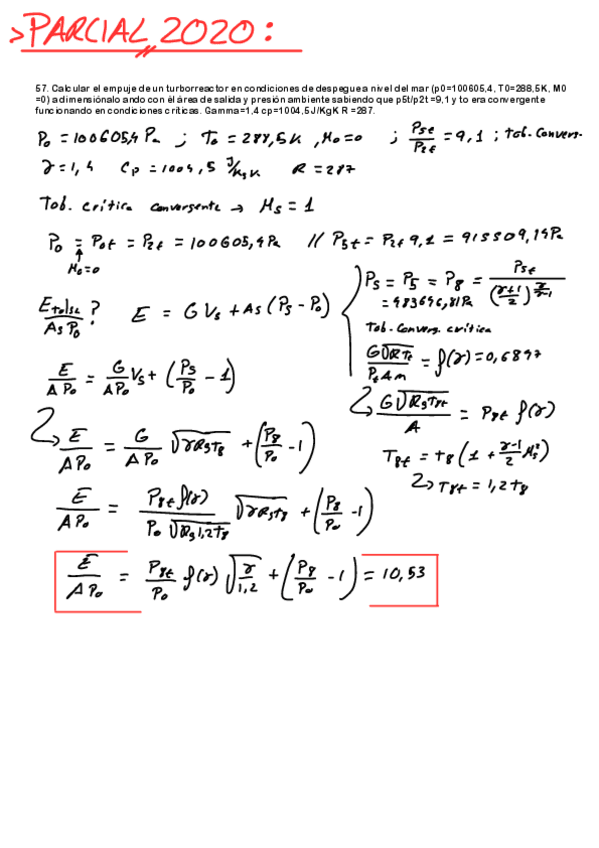 >PARCIAL 2020:
57. Calcular el empuje de un turborreactor en condiciones de despegue a nivel del mar (p0=100605,4, T0=288,5K, M0
=0) adimensiónalo ando con èl área de salida y presión ambiente sabiendo que p5t/p2t =9,1 y to era convergente
funcionando en condiciones críticas. Gamma=1,4 cp=1004,5J/KgK R =287.
P₀ = 100605,4 Pa ; T₀ = 288,5K , M₀=0 ; P5t/P2t = 9,1 ; Tob. Conver.
γ=1,4 Cp=1004,5 J/kgK R=287
Tob. crítica convergente → Ms=1
P₀ = P0t = P2t = 100605,4Pa // P5t = P2t 9,1 = 915509,14Pa
M₀=0
Ps = P5 = P8 = P5t/((γ+1)/2)^(γ/(γ-1))
= 483646,81Pa
E/(As P₀)? E = G Vs + As (Ps - P₀)
Tob. Converg. crítica
G√(RTt)/(Pt Am) = f(γ) = 0,6847
E/(A P₀) = G/(A P₀) Vs + (Ps/P₀ - 1)
G√(Rg T8t)/A = P8t f(γ)
E/(A P₀) = G/(A P₀) √(γ Rg T8) + (P8/P₀ - 1)
T8t = t8 (1 + (γ-1)/2 Ms²)
T8t = 1,2 t8
E/(A P₀) = P8t f(γ)/(P₀ √(Rg 1,2 t8)) √(γ Rg t8) + (P8/P₀ - 1)
E/(A P₀) = P8t/P₀ f(γ) √(γ/1,2) + (P8/P₀ - 1) = 10,53